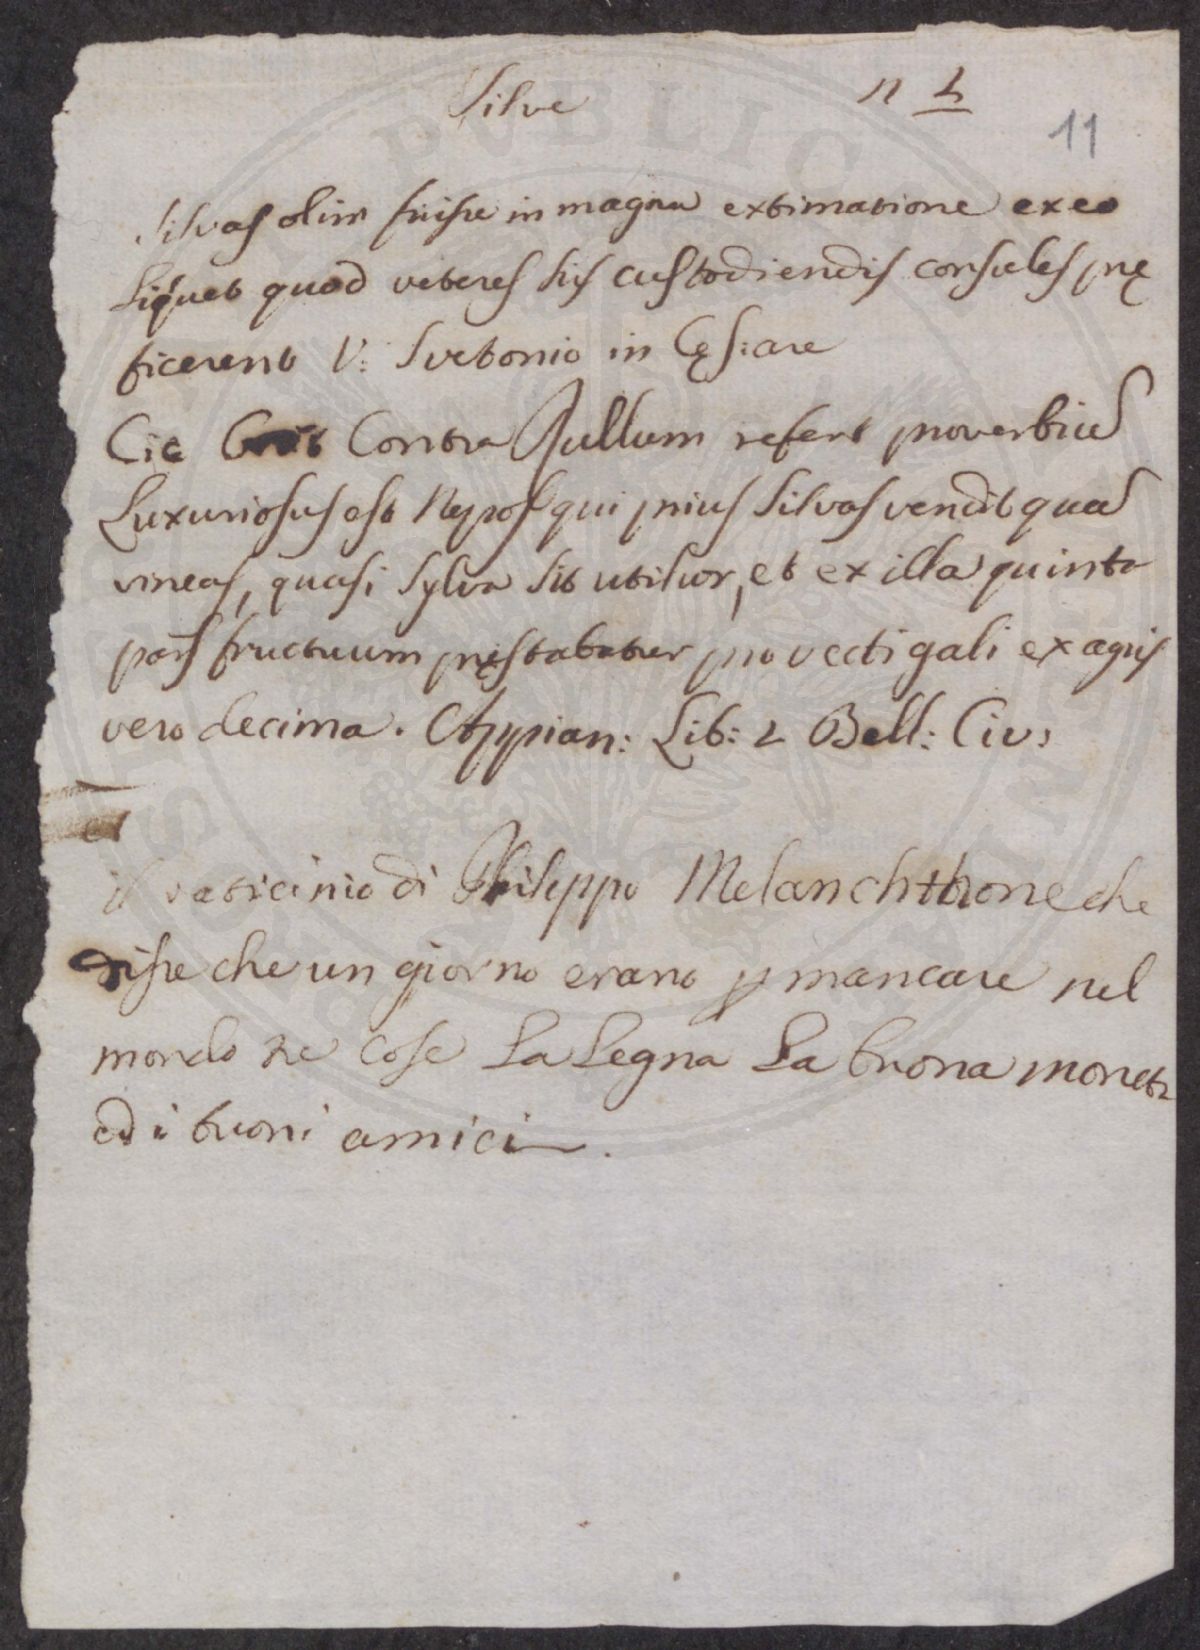 Silve
n 2
11
Silvas olim fuisse in magna extimatione ex eo
liquet quod veteres his custodiendis consules prę
ficerent V: Svetonio in Cęsare
Cic Contra Rullum refert proverbiũ
Luxuriosus est Nepos qui prius silvas vendit quã
vineas, quasi sylva sit utilior, et ex illa quinta
pars fructuum pręstabatur pro vectigali ex agris
vero decima. Appian: Lib: 2 Bell: Civ:
il vaticinio di Philippo Melanchthone che
disse che un giorno erano p mancare nel
mondo tre cose La Legna La buona moneta
ed i buoni amici.